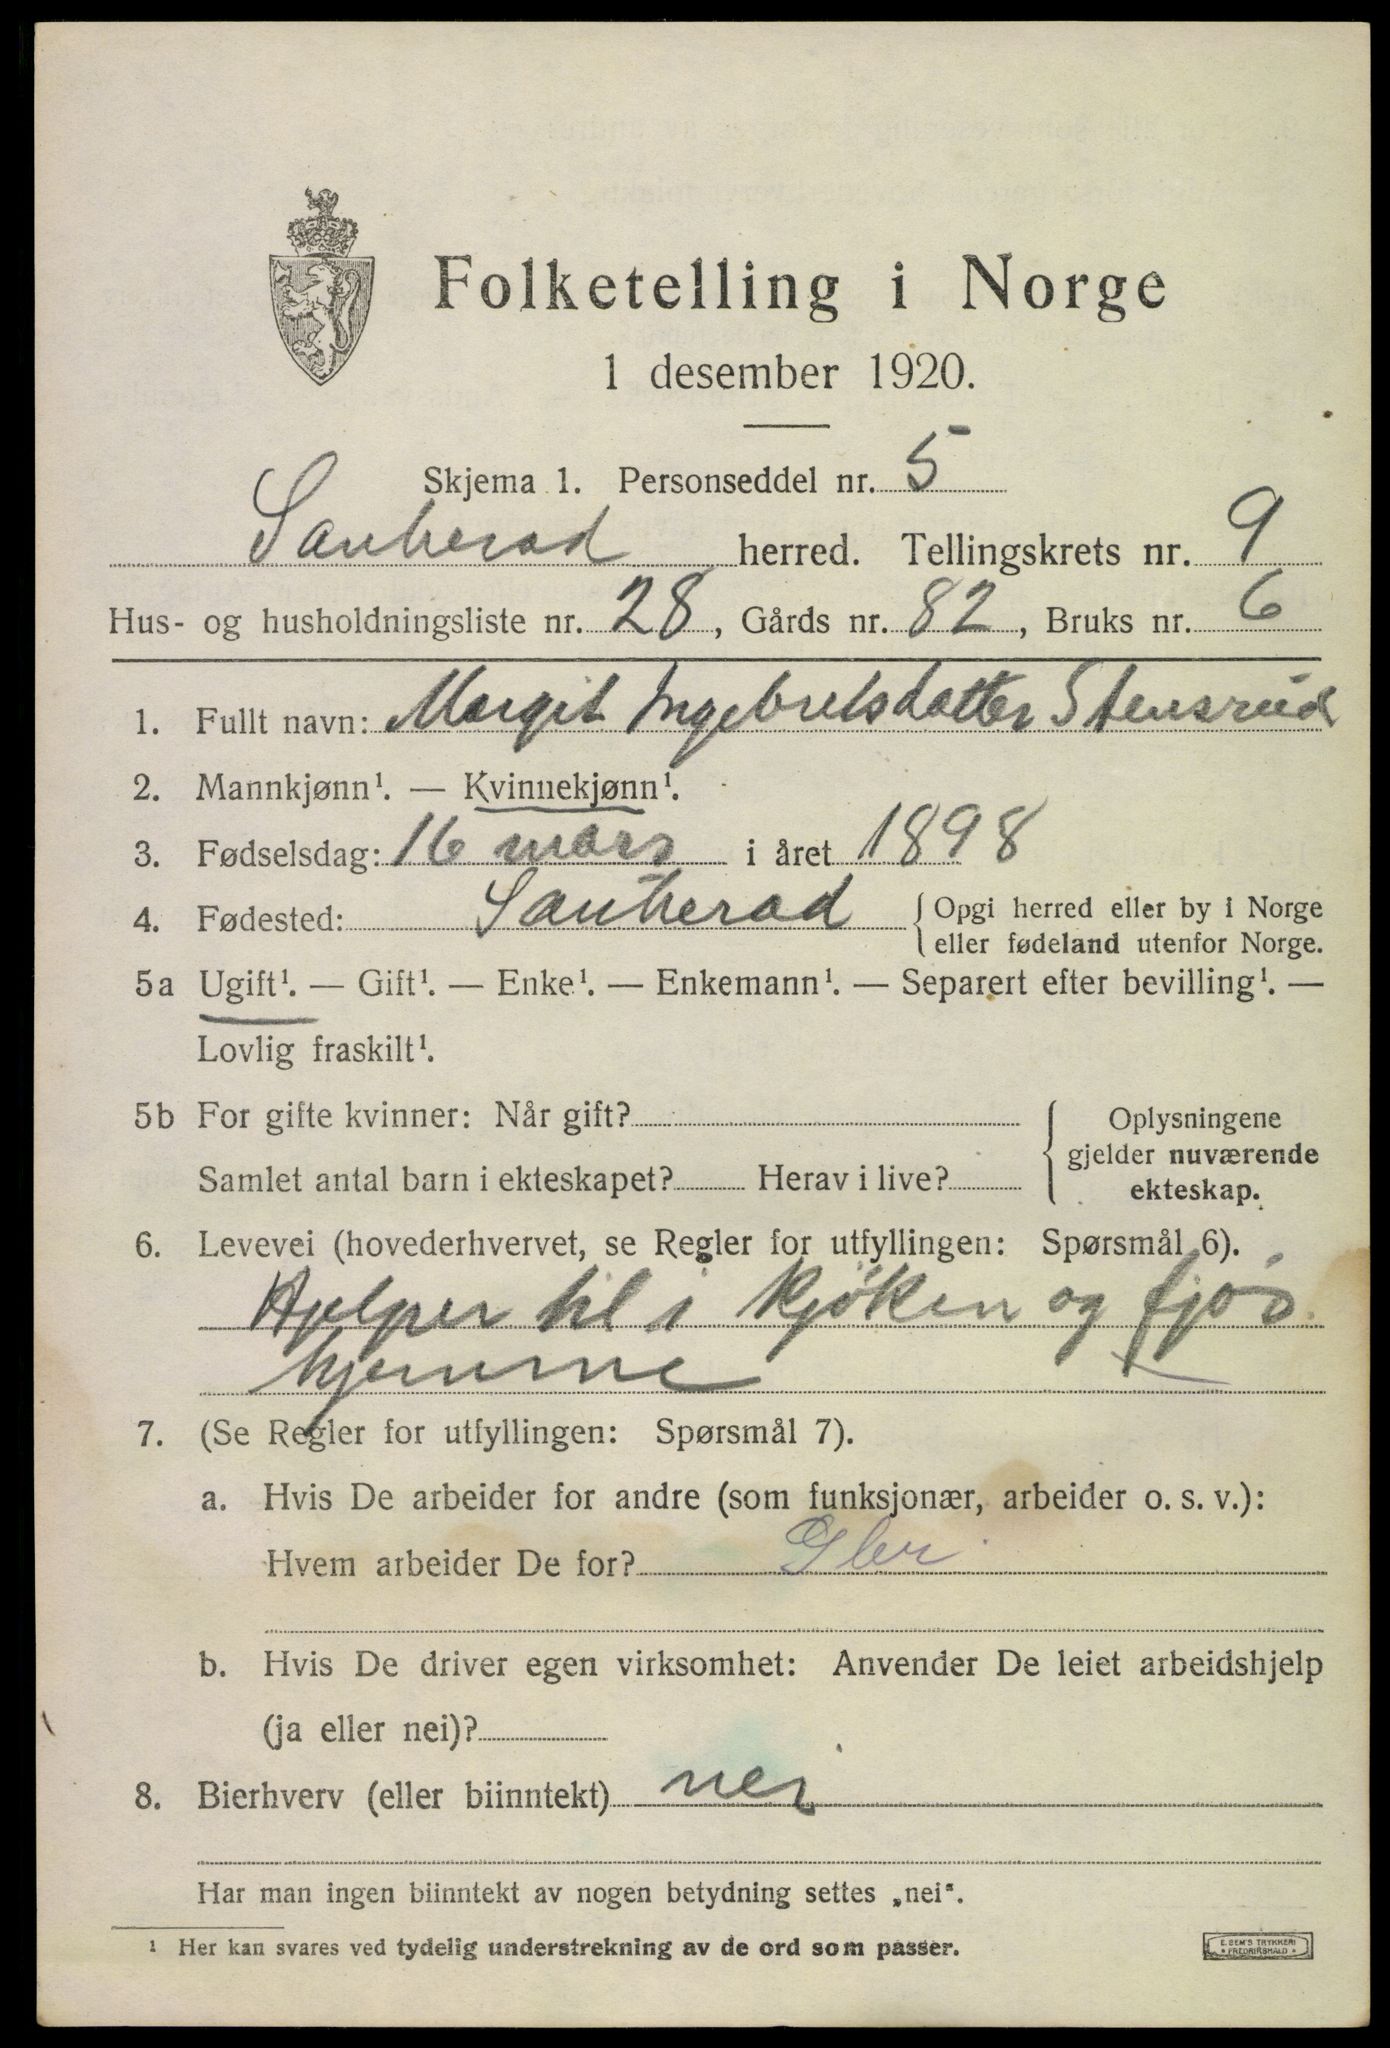 Folketelling i Norge
1 desember 1920.
Skjema 1. Personseddel nr. 5
Sauherad herred. Tellingskrets nr. 9
Hus- og husholdningsliste nr. 28, Gårds nr. 82, Bruks nr. 6
1. Fullt navn: Margit Ingebretsdatter Stensrud
2. Mannkjønn¹. — Kvinnekjønn¹.
3. Fødselsdag: 16 mars i året 1898
4. Fødested: Sauherad { Opgi herred eller by i Norge
eller fødeland utenfor Norge.
5a Ugift¹. — Gift¹. — Enke¹. — Enkemann¹. — Separert efter bevilling¹. —
Lovlig fraskilt¹.
5b For gifte kvinner: Når gift?
Samlet antal barn i ekteskapet? Herav i live?
Oplysningene
gjelder nuværende
ekteskap.
6. Levevei (hovederhvervet, se Regler for utfyllingen: Spørsmål 6).
Hjelper til i kjøken og fjøs
hjemme
7. (Se Regler for utfyllingen: Spørsmål 7).
a. Hvis De arbeider for andre (som funksjonær, arbeider o. s. v.):
Hvem arbeider De for?
b. Hvis De driver egen virksomhet: Anvender De leiet arbeidshjelp
(ja eller nei)?
8. Bierhverv (eller biinntekt) nei
Har man ingen biinntekt av nogen betydning settes „nei“.
¹ Her kan svares ved tydelig understrekning av de ord som passer.
E. SEM'S TRYKKERI
FREDRIKSHALD